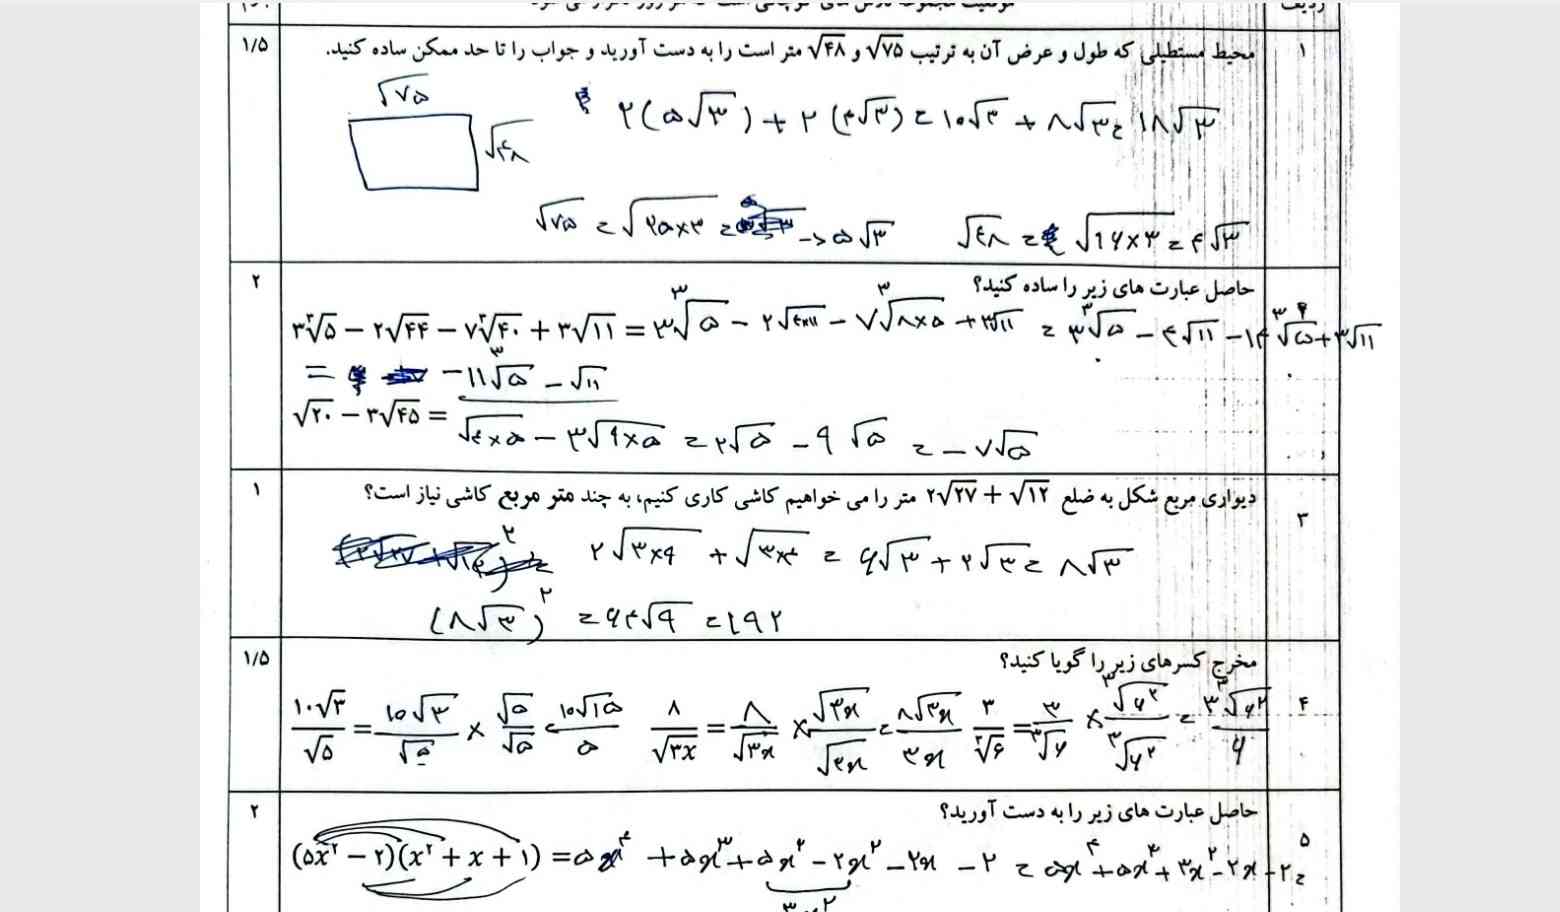 ردیف
۱ محیط مستطیلی که طول و عرض آن به ترتیب √۷۵ و √۴۸ متر است را به دست آورید و جواب را تا حد ممکن ساده کنید. ۱/۵
√۷۵
۲(۵√۳) + ۲(۴√۳) = ۱۰√۳ + ۸√۳ = ۱۸√۳
√۴۸
√۷۵ = √۲۵×۳ = → ۵√۳ √۴۸ = √۱۶×۳ = ۴√۳
حاصل عبارت های زیر را ساده کنید؟ ۲
۳∛۵ − ۲√۴۴ − ۷∛۴۰ + ۳√۱۱ = ۳∛۵ − ۲√۴×۱۱ − ۷∛۸×۵ + ۳√۱۱ = ۳∛۵ − ۴√۱۱ − ۱۴∛۵ + ۳√۱۱
= −۱۱∛۵ − √۱۱
√۲۰ − ۳√۴۵ = √۴×۵ − ۳√۹×۵ = ۲√۵ − ۹√۵ = −۷√۵
۳ دیواری مربع شکل به ضلع ۲√۲۷ + √۱۲ متر را می خواهیم کاشی کاری کنیم، به چند متر مربع کاشی نیاز است؟ ۱
۲√۳×۹ + √۳×۴ = ۶√۳ + ۲√۳ = ۸√۳
(۸√۳)² = ۶۴√۹ = ۱۹۲
۴ مخرج کسرهای زیر را گویا کنید؟ ۱/۵
۱۰√۳/√۵ = ۱۰√۳/√۵ × √۵/√۵ = ۱۰√۱۵/۵ ۸/√۳x = ۸/√۳x × √۳x/√۳x = ۸√۳x/۳x ۳/∛۶ = ۳/∛۶ × ∛۶²/∛۶² = ۳∛۶²/۶
۵ حاصل عبارت های زیر را به دست آورید؟ ۲
(۵x² − ۲)(x² + x + ۱) = ۵x⁴ + ۵x³ + ۵x² − ۲x² − ۲x − ۲ = ۵x⁴ + ۵x³ + ۳x² − ۲x − ۲ =
۳x²